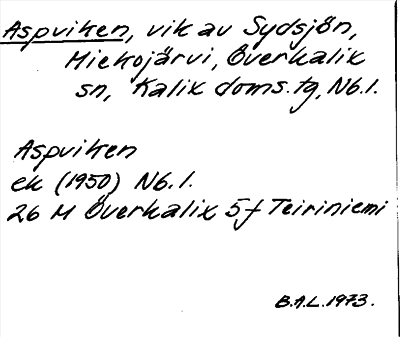 Aspviken, vik av Sydsjön,
Miekojärvi, Överkalix
sn, Kalix doms. tg, Nb. l.
Aspviken
ek (1950) Nb. l.
26 M Överkalix 5 f Teiriniemi
B.A.L. 1973.